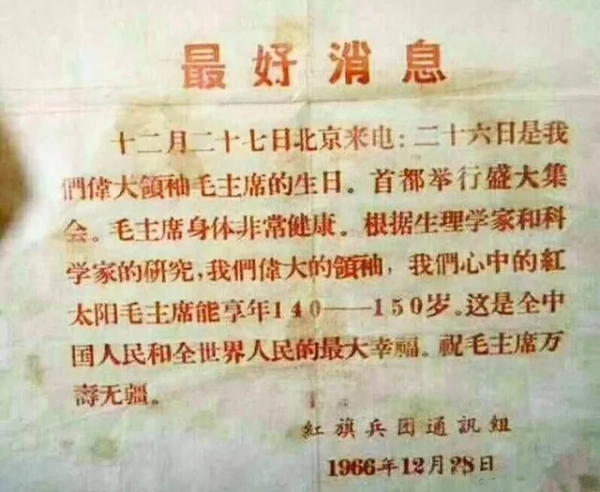 最好消息
十二月二十七日北京来电：二十六日是我
們偉大領袖毛主席的生日。首都举行盛大集
会。毛主席身体非常健康。根据生理学家和科
学家的研究，我們偉大的領袖，我們心中的紅
太阳毛主席能享年140——150岁。这是全中
国人民和全世界人民的最大幸福。祝毛主席万
壽无疆。
紅旗兵团通訊組
1966年12月28日